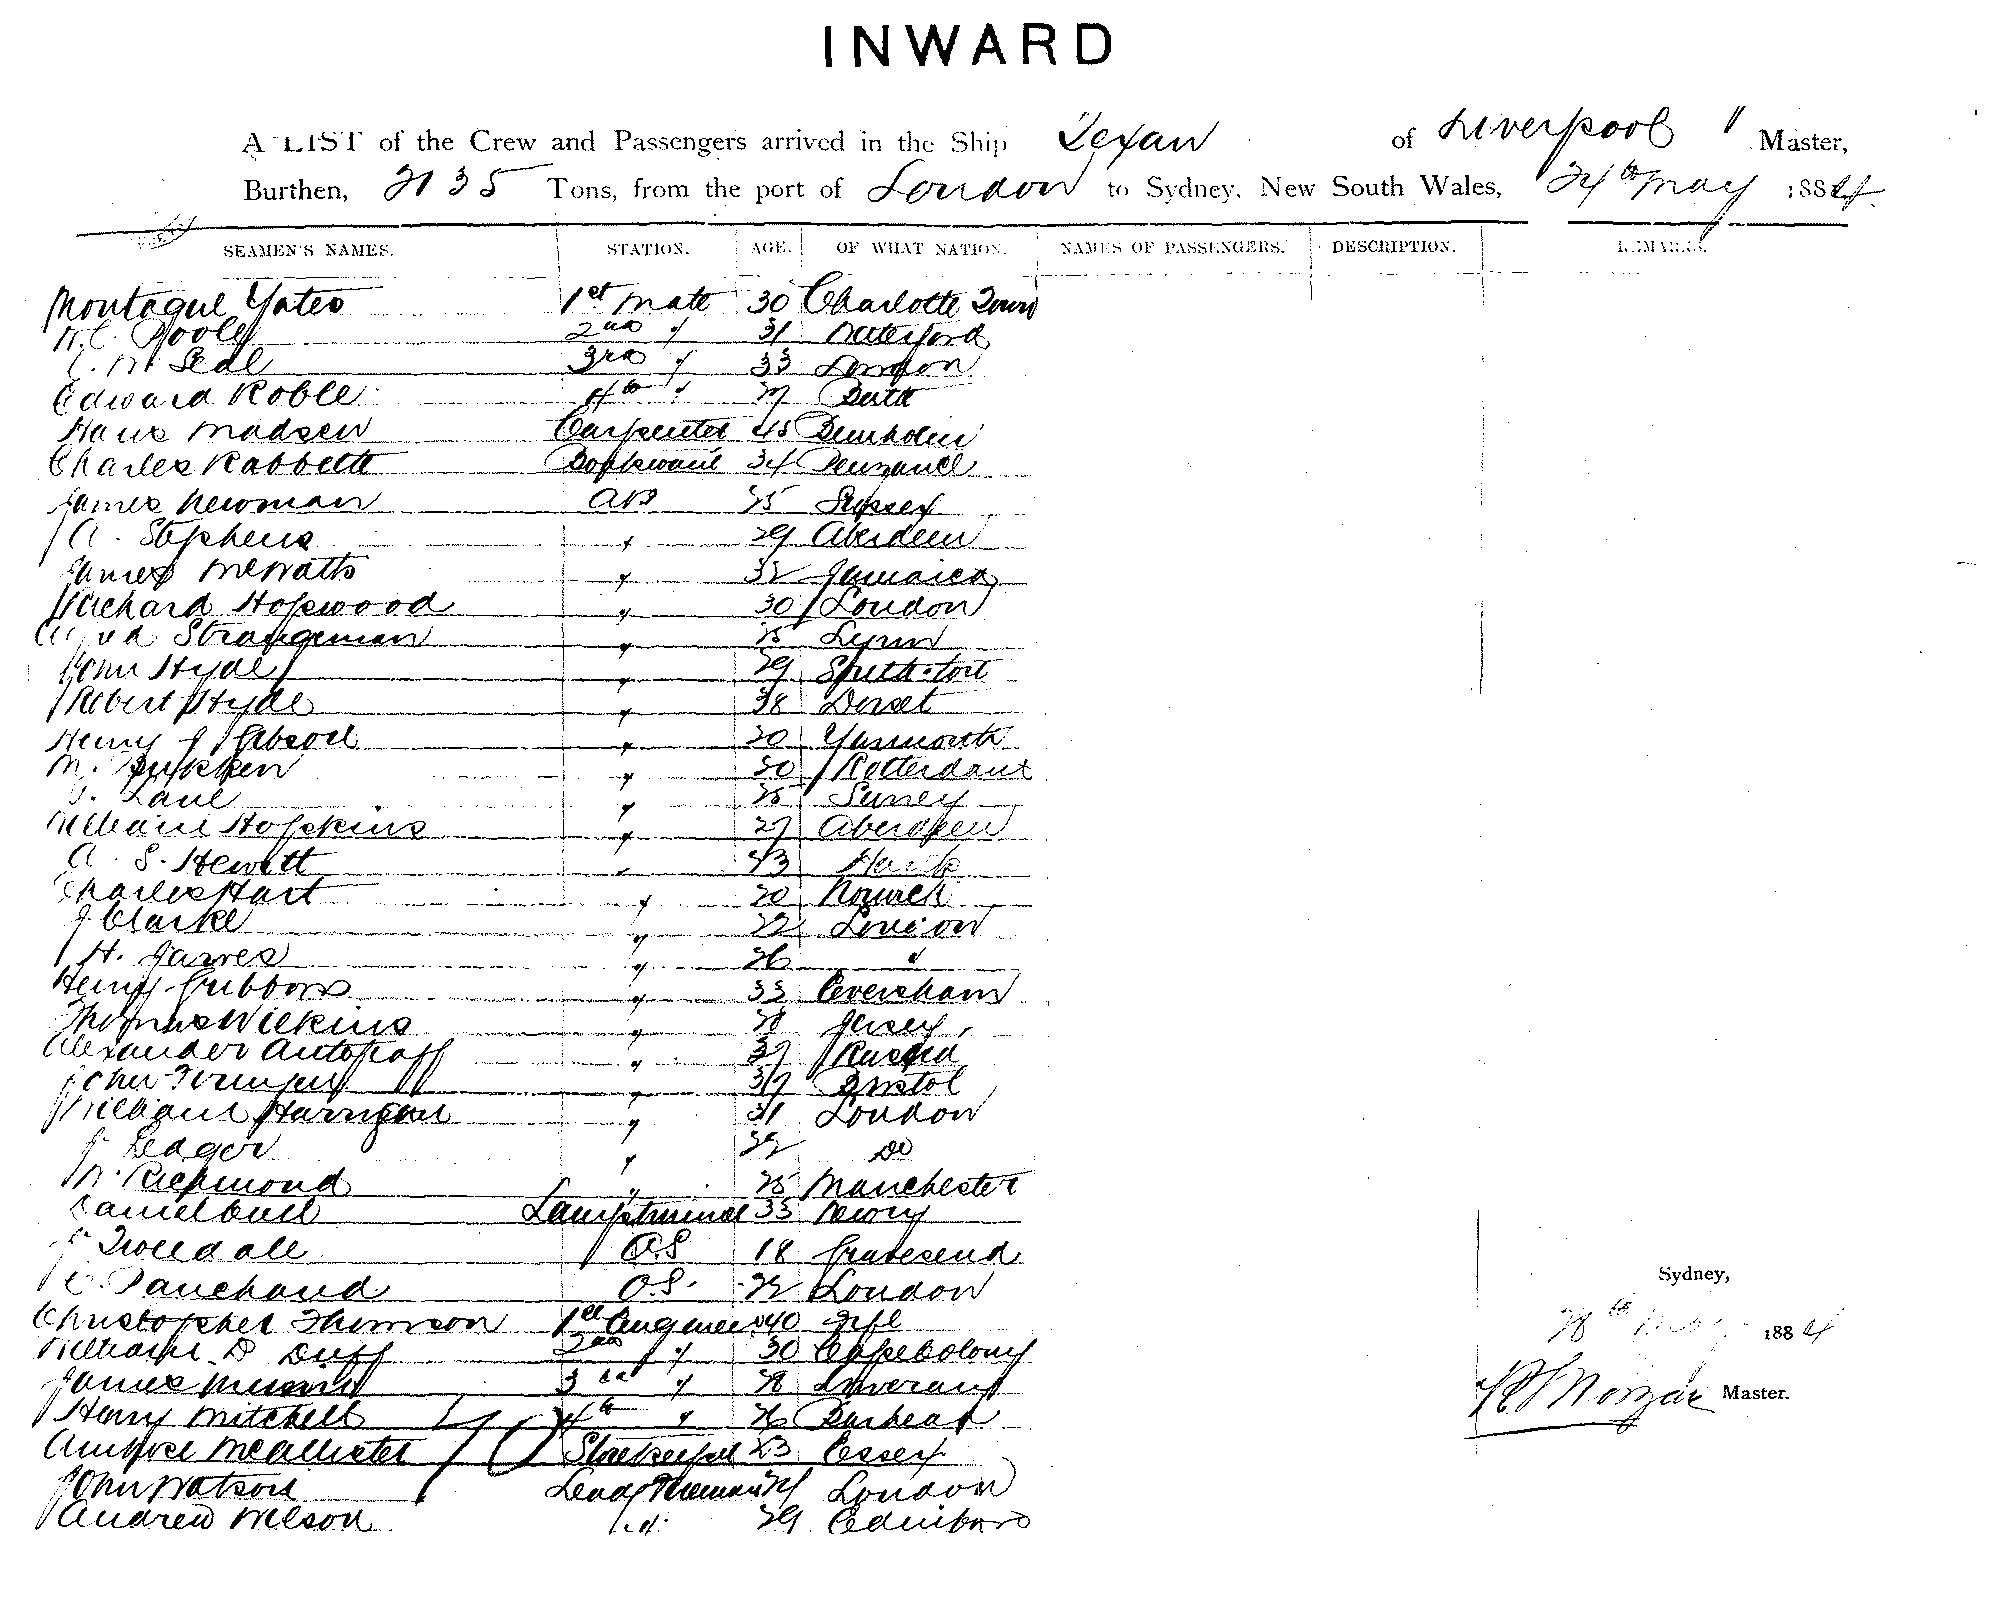 INWARD
A LIST of the Crew and Passengers arrived in the Ship Texan of Liverpool " Master,
Burthen, 2135 Tons, from the port of London to Sydney, New South Wales, 24th May 1884
SEAMEN'S NAMES. STATION. AGE. OF WHAT NATION. NAMES OF PASSENGERS. DESCRIPTION. REMARKS.
Montague Yates 1st Mate 30 Charlotte Town
Poole 2nd " 31 Waterford
Seal 3rd " 33 London
Edward Roble 4th " 27
Hans Madsen Carpenter 45
Charles Rabbett 34 Penzance
James Newman AB 25 Sussex
A. Stephens " 29 Aberdeen
James McWatts " 32 Jamaica
Richard Hopwood " 30 London
Strangeman " 25 Lynn
John Hyde " 29
Robert Hyde " 38 Dorset
Henry J " 20 Yarmouth
M. " 30 Rotterdam
Lane " 25 Surrey
William Hopkins " 27 Aberdeen
A. S. Hewitt " 43
Charles Hart " 20 Norwich
J Clarke " 22 London
H. James " 26 "
Henry Gibbons " 33 Eversham
Thomas Wilkins " 28 Jersey
Alexander " 37 Russia
John " 37 Bristol
William Harrigan " 31 London
J Seager " 32 do
W. Richmond " 25 Manchester
Daniel Lamptrimmer 35 Newry
J Tweedale OS 18 Gravesend
OS. 22 London
Christopher Thomson 1st Engineer 40 Fife
William D Duff 2nd " 30 Cape Colony
James 3rd " 28
Henry Mitchell 4th " 26
Ambrose McAllister Storekeeper 23 Essex
John Watson Leadg Fireman London
Andrew Wilson 29 Edinboro
Sydney,
28th May 1884
Master.